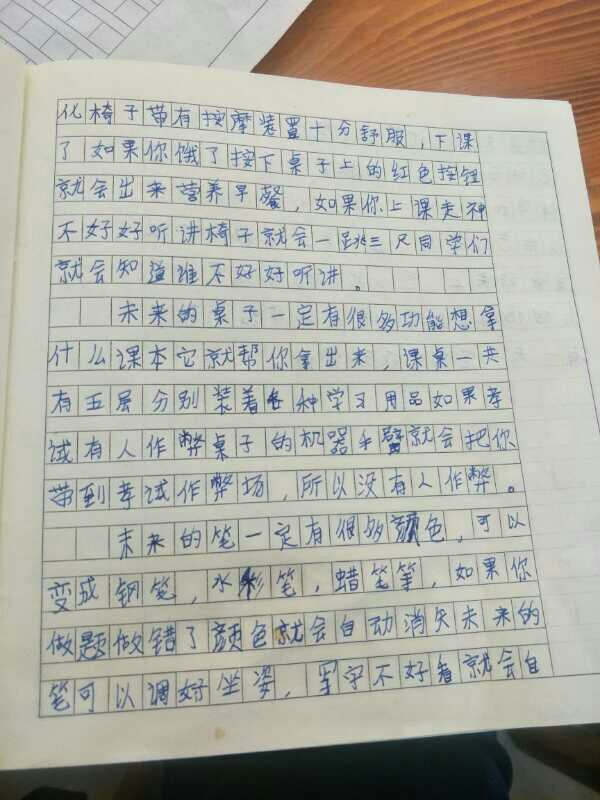 化椅子带有按摩装置十分舒服，下课
了如果你饿了按下桌子上的红色按钮
就会出来营养早餐，如果你上课走神
不好好听讲椅子就会一跳三尺同学们
就会知道谁不好好听讲。
未来的桌子一定有很多功能想拿
什么课本它就帮你拿出来，课桌一共
有五层分别装着各种学习用品如果考
试有人作弊桌子的机器手臂就会把你
带到考试作弊场，所以没有人作弊。
未来的笔一定有很多颜色，可以
变成钢笔，水彩笔，蜡笔等，如果你
做题做错了颜色就会自动消失未来的
笔可以调好坐姿，写字不好看就会自